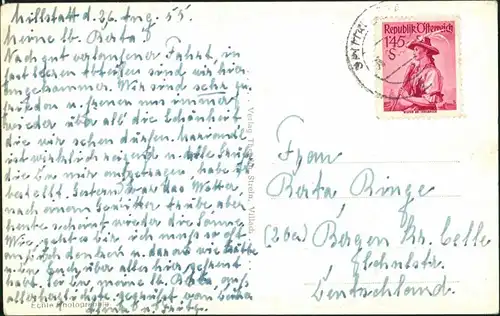 Millstatt d. 26. Aug. 55.
Meine lb. Berta!
Nach gut verlaufener Fahrt, in
sind wir hier
angekommen. Wir sind sehr zu-
frieden u. freuen uns immer
wieder über all die Schönheit
die wir sehen dürfen.
ist wirklich reizend u. alle Grüße
die Du mir aufgetragen, habe ich
bestellt. Gestern war das Wetter
nach einem Gewitter trübe aber
heute scheint wieder die Sonne
Wie geht es Dir ich muß so oft
an Dich denken u. daran wie
Euch über alles hier gefreut
habt. Sei Du meine lb. Berta aufs
allerherzlichste gegrüßt von Deiner
Echte Photographie
Verlag
Villach
Republik Österreich
1'45 S
Frau
Berta Ringe
(20a) Bergen Kr. Celle
Deutschland